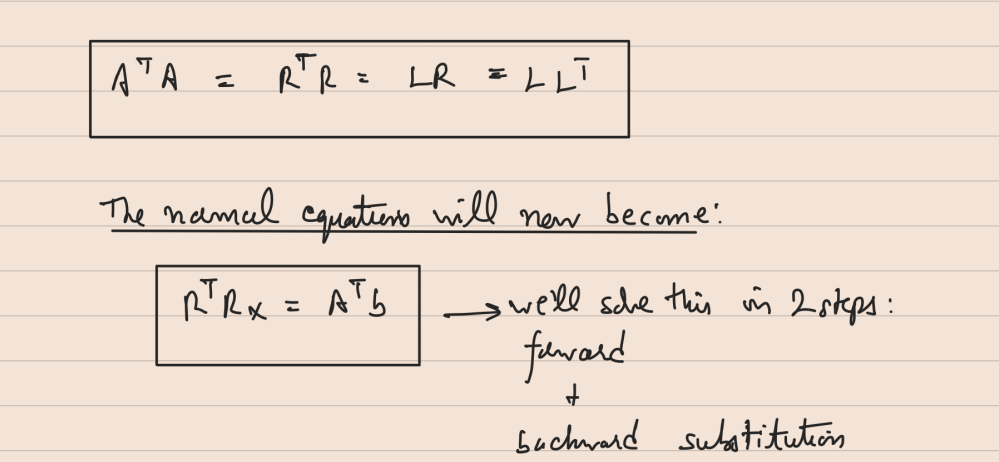 AᵀA = RᵀR = LR = LLᵀ
The normal equations will now become:
RᵀRx = Aᵀb → we'll solve this in 2 steps:
forward
+
backward substitution